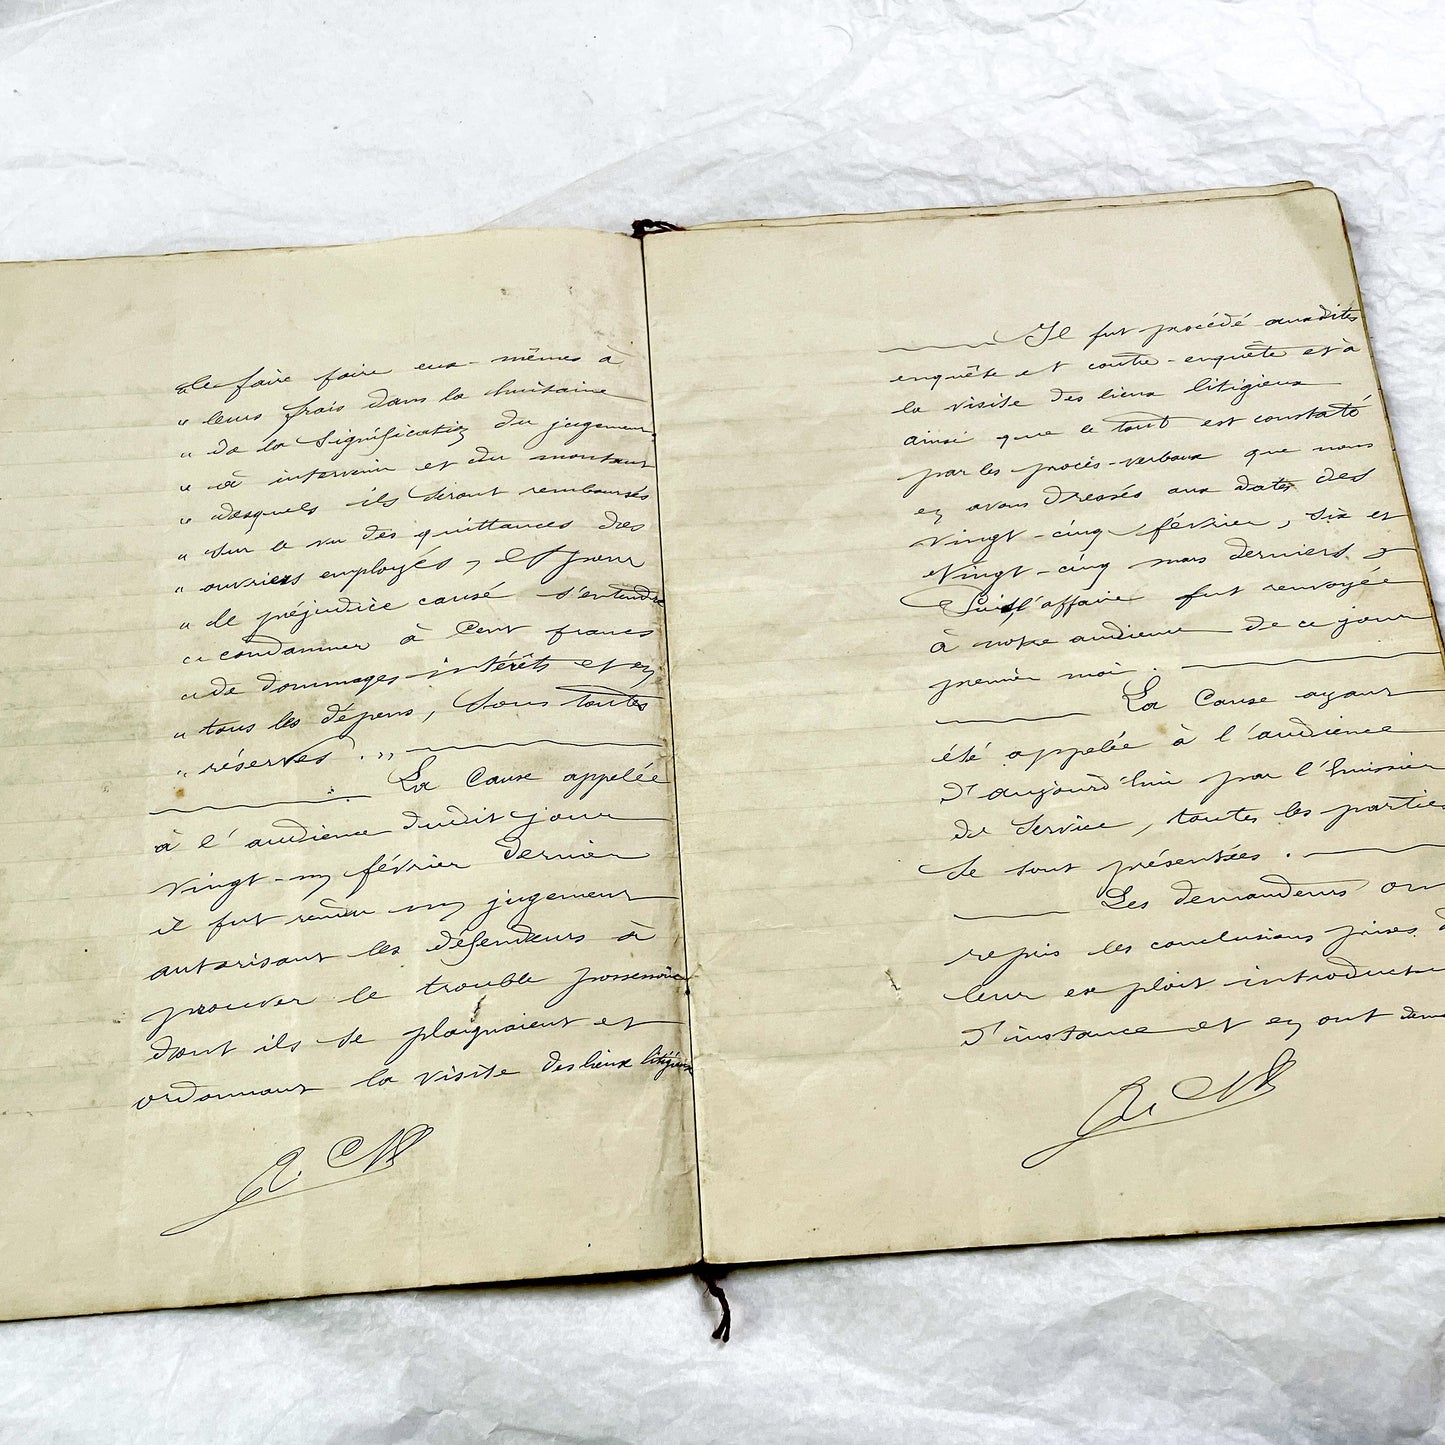 "de faire faire eux-mêmes à
" leurs frais dans la huitaine
" de la signification du jugement
" à intervenir et du montant
" desquels ils seront remboursés
" sur le vu des quittances des
" ouvriers employés, et pour
" le préjudice causé s'entendre
" condamner à Cent francs
" de dommages-intérêts et en
" tous les dépens, Sous toutes
" réserves. "
La Cause appelée
à l'audience dudit jour
vingt-un février dernier
il fut rendu un jugement
autorisant les défendeurs à
prouver le trouble possessoire
dont ils se plaignaient et
ordonnant la visite des lieux litigieux
Il fut procédé auxdites
enquête et contre-enquête et à
la visite des lieux litigieux
ainsi que le tout est constaté
par les procès-verbaux que nous
en avons dressés aux dates des
vingt-cinq février, six et
vingt-cinq mars derniers &
Puis l'affaire fut renvoyée
à notre audience de ce jour
premier mai.
La Cause ayant
été appelée à l'audience
d'aujourd'hui par l'huissier
de Service, toutes les parties
se sont présentées.
Les demandeurs ont
repris les conclusions prises d
leur exploit introducti
d'instance et en ont dema